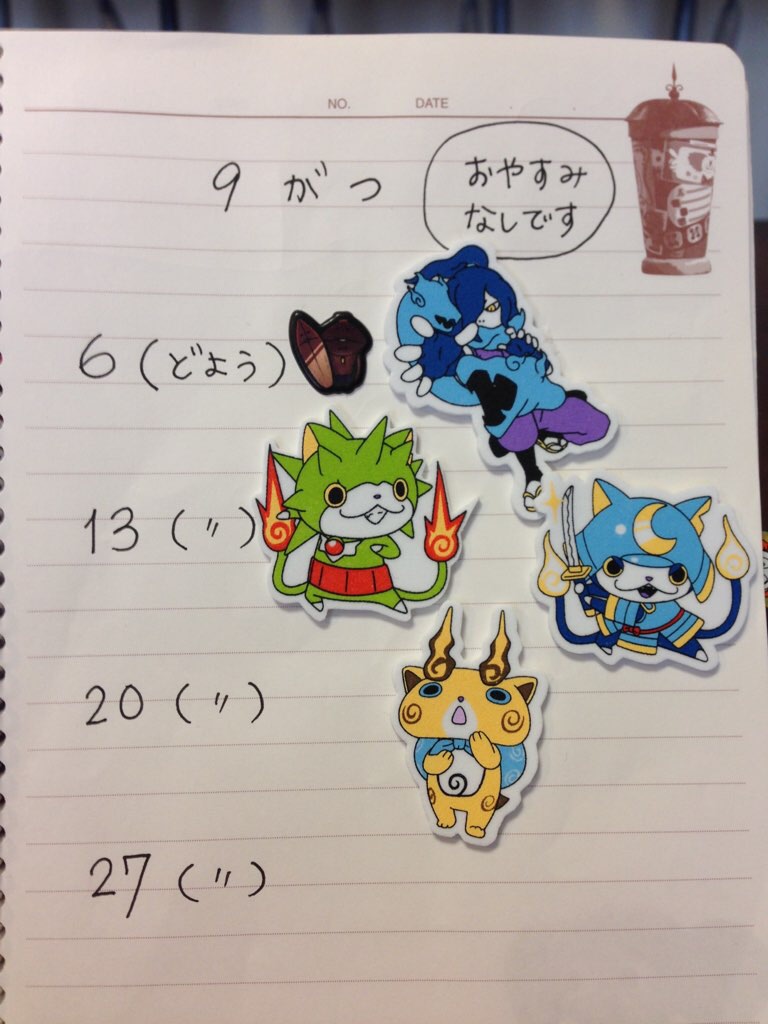 NO. DATE
9 がつ
おやすみ
なしです
6 (どよう)
13 (〃)
20 (〃)
27 (〃)